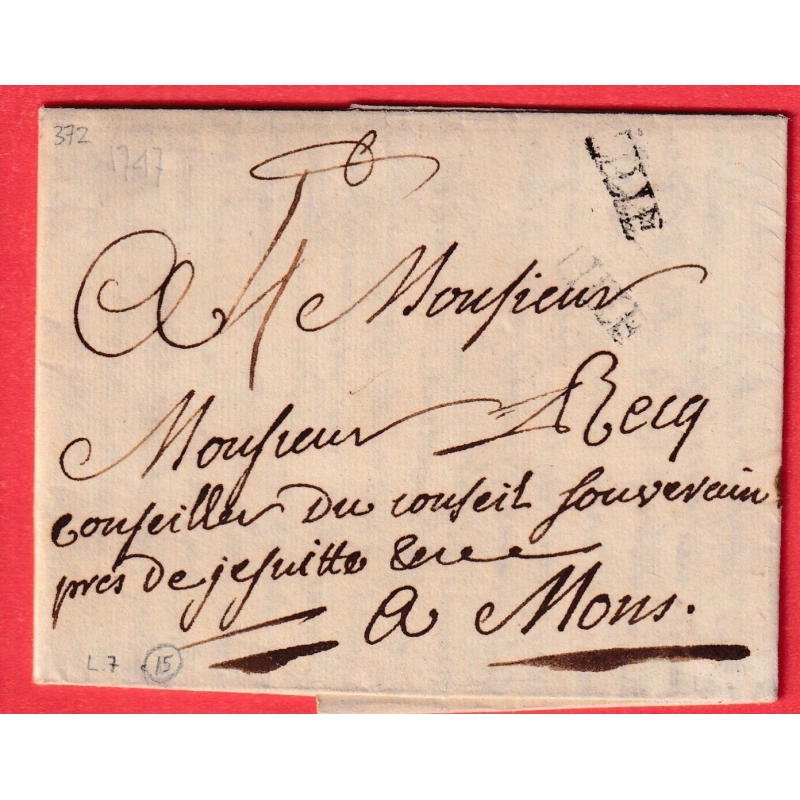 372
1747
LILLE
LILLE
4
A Monsieur
Monsieur Recq
conseiller du conseil souverain
pres de jesuitte &c
a Mons.
L.7 15